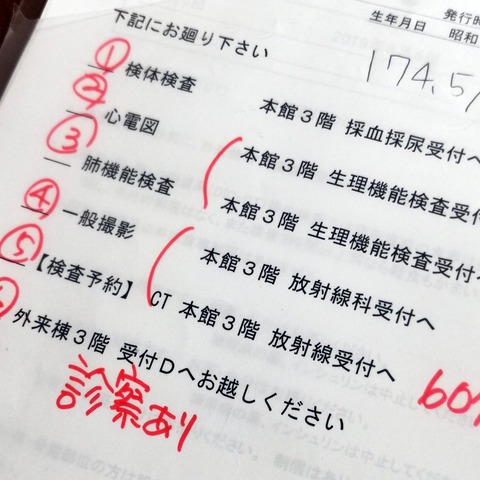 発行時
生年月日 昭和
下記にお廻り下さい
174.5/
① 検体検査 本館3階 採血採尿受付へ
② 心電図 本館3階 生理機能検査受付
③ 肺機能検査 本館3階 生理機能検査受付へ
④ 一般撮影 本館3階 放射線科受付へ
⑤ 【検査予約】 CT 本館3階 放射線受付へ
外来棟3階 受付Dへお越しください
60
診察あり